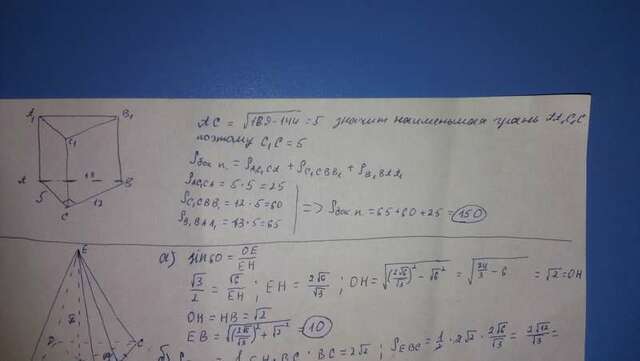 A₁ B₁
C₁
A 13 B
5 12
C
AC = √169-144 = 5 значит наименьшая грань AA₁C₁C
поэтому C₁C = 5
Sбок п. = S_AC₁CA + S_C₁CBB₁ + S_B₁BAA₁
S_AC₁CA = 5·5=25
S_C₁CBB₁ = 12·5=60
S_B₁BAA₁ = 13·5=65
=> Sбок п. = 65+60+25 = 150
E
C
а) sin60 = OE/EH
√3/2 = √6/EH ; EH = 2√6/√3 ; OH = √((2√6/√3)² - √6²) = √(24/3 - 6) = √2 = OH
OH = HB = √2
EB = √((2√6/√3)² + √2²) = √10
б) BC = 2√2 ; S_EBC = 1/2 · 2√2 · 2√6/√3 = 2√12/√3 =